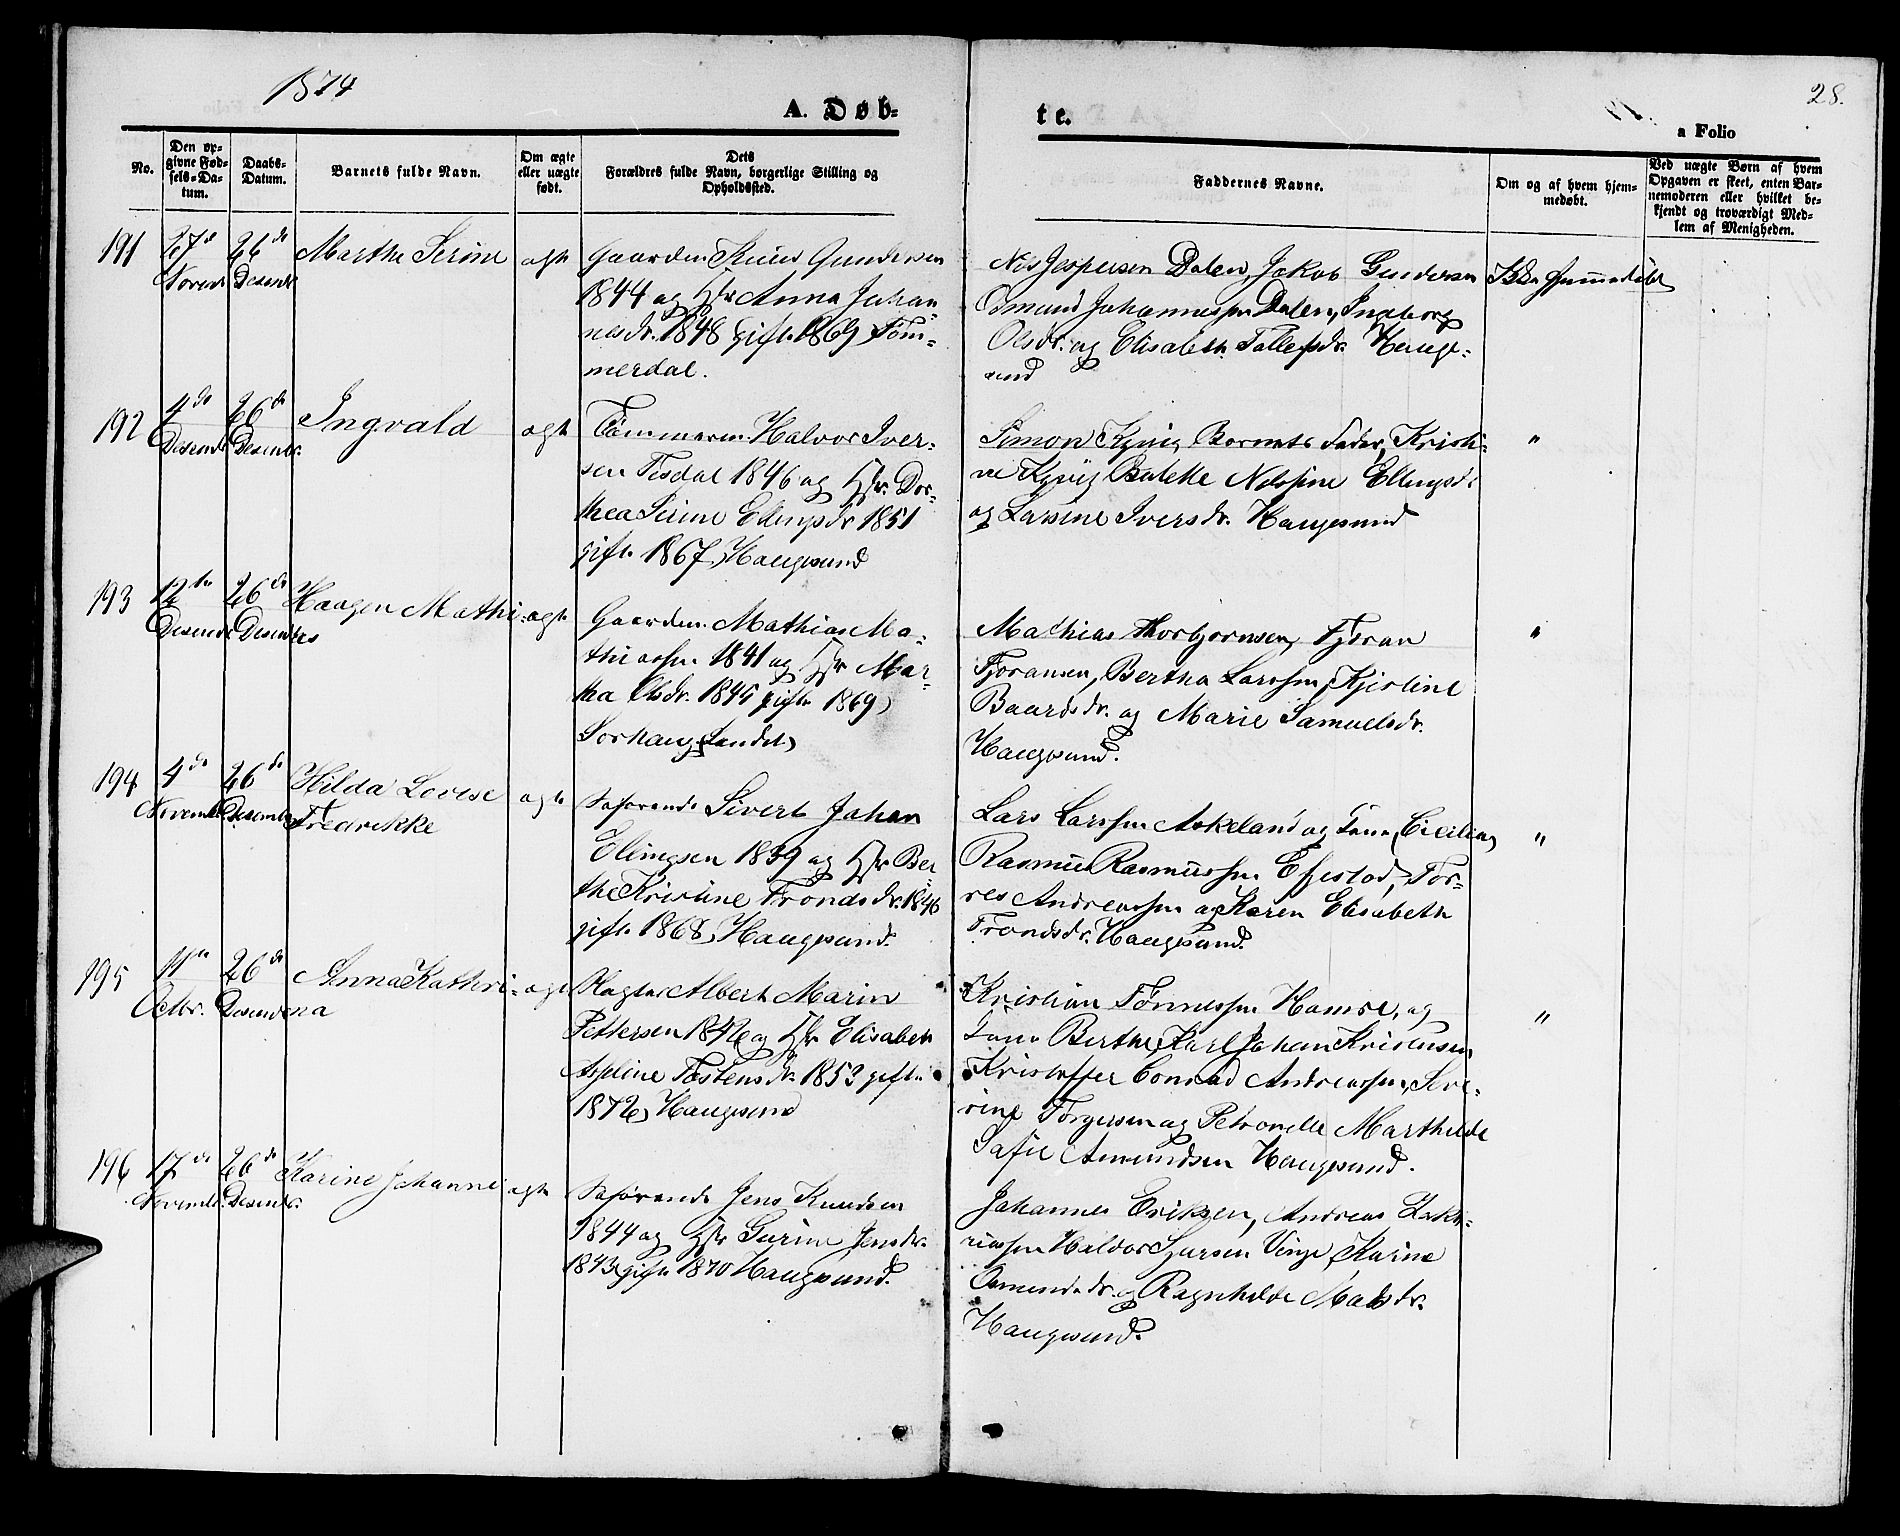 1874
28.
A. Døb-
te.
a Folio
No.
Den op-
givne Fød-
sels-Da-
tum.
Daabs-
Datum.
Barnets fulde Navn.
Om ægte
eller uægte
født.
Dets
Forældres fulde Navn, borgerlige Stilling og
Opholdssted.
Faddernes Navne.
Om og af hvem hjem-
medøbt.
Ved uægte Børn af hvem
Opgaven er skeet, enten Bar-
nemoderen eller hvilket be-
kjendt og troværdigt Med-
lem af Menigheden.
191
27de
Novembr
26de
Desembr
Marthe Serine
ægte
Gaardm. Gundersen
1844 og Hstr Anna Johan-
nesdr. 1848 gifte 1869, Tøm-
merdal.
Nils Jespersen Dalen, Jakob Gundersen
Osmund Johannessen Dalen, Ingeborg
Olsdr. og Elisabeth Tollefsdr. Hauge-
sund
Ikke hjemmedøbt
192
4de
Desembr
26de
Desembr.
Ingvald
ægte
Tømmerm. Halvor Iver-
sen Tisdal 1846 og Hstr. Dor-
thea Serine Elingsdr 1851
gifte 1867, Haugesund
Simon Barnets Fader, Kristi-
ne Nilssine Ellingsdr
og Larsine Iversdr. Haugesund
"
193
12te
Desembr
26de
Desembr
Haagen Mathi-
as
ægte
Gaardm. Mathias Ma-
thiassen 1841 og Hstr Mar-
tha Olsdr. 1845 gifte 1869,
Sørhaug Landet
Mathias Thorbjørnsen, Tjøran
Tjøransen, Bertha Larssen, Kjistine
Baardsdr. og Marie Samuelsdr.
Haugesund.
"
194
4de
Novembr
26de
Desembr
Hilda Lovise
Fredrikke
ægte
Søfarende Sivert Johan
Elingsen 1839 og Hstr Ber-
the Kristine Trondsdr. 1846
gifte 1868, Haugesund.
Lars Larssen Askeland og Kone Cicilia,
Rasmus Rasmussen Efjestad, Tor-
res Andreassen og Karen Elisabeth
Trondsdr. Haugesund.
"
195
11te
Octbr.
26de
Desembr
Anna Kathri-
na
ægte
Albert Marin
Pettersen 1842 og Hstr Elisabeth
Aspeline Tostensdr. 1853 gifte
1872, Haugesund
Kristian Tønnessen Hamre, og
Kone Berthe, Karl Johan Kristensen
Kristoffer Conrad Andreassen, Seve-
rine Torgersen og Petronelle Marthilde
Sofie Amundsen Haugesund.
"
196
17de
Novembr.
26de
Desembr.
Karine Johanne
ægte
Søfarende Jens Knudsen
1844 og Hstr Gurine Jensdr.
1843, gifte 1870 Haugesund.
Johannes Eriksen, Andreas Zaka-
riassen Haldor Sjursen Vinje, Karine
Osmundsdr. og Ragnhilde Madsdr.
Haugesund.